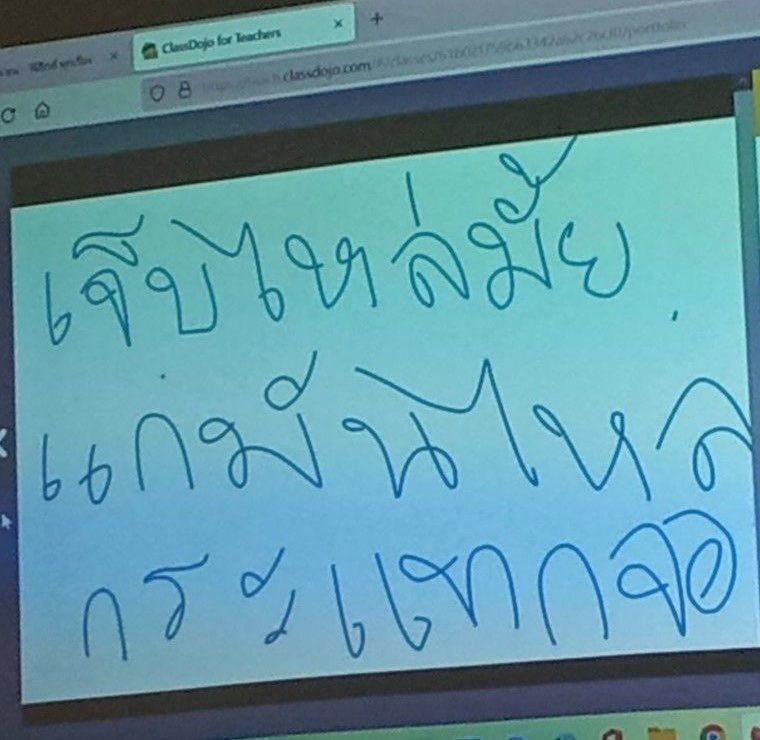 ClassDojo for Teachers
classdojo.com
เจ็บไหล่มั้ย
แกมันไหล
กระแทกจอ